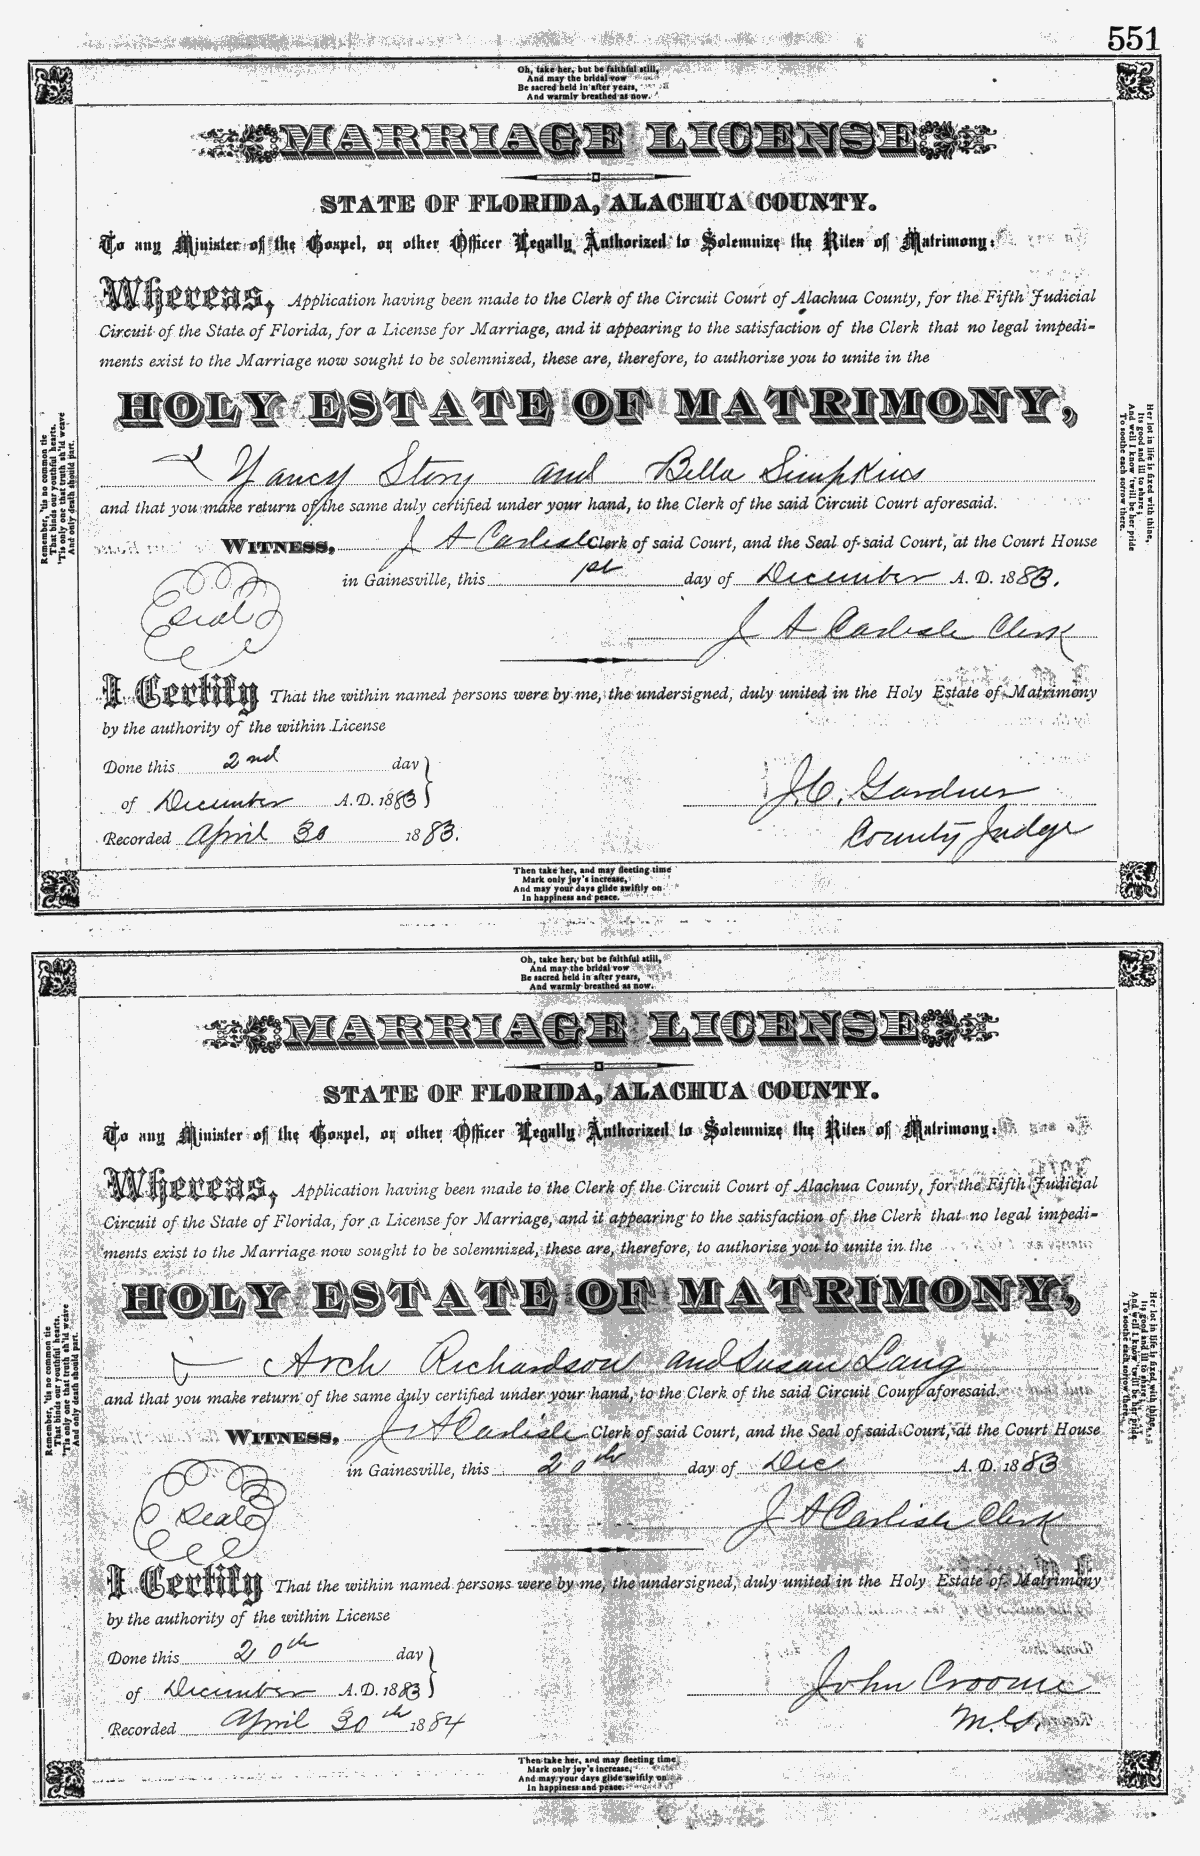 551
Oh, take her, but be faithful still,
And may the bridal vow
Be sacred held in after years,
And warmly breathed as now.
MARRIAGE LICENSE
STATE OF FLORIDA, ALACHUA COUNTY.
To any Minister of the Gospel, or other Officer Legally Authorized to Solemnize the Rites of Matrimony:
Whereas, Application having been made to the Clerk of the Circuit Court of Alachua County, for the Fifth Judicial
Circuit of the State of Florida, for a License for Marriage, and it appearing to the satisfaction of the Clerk that no legal impedi-
ments exist to the Marriage now sought to be solemnized, these are, therefore, to authorize you to unite in the
HOLY ESTATE OF MATRIMONY,
Yancy Story and Bella Simpkins
and that you make return of the same duly certified under your hand, to the Clerk of the said Circuit Court aforesaid.
WITNESS, J A Carlisle Clerk of said Court, and the Seal of said Court, at the Court House
in Gainesville, this 1st day of December A. D. 1883.
Seal
J A Carlisle Clerk
I Certify That the within named persons were by me, the undersigned, duly united in the Holy Estate of Matrimony
by the authority of the within License
Done this 2nd day
of December A.D. 1883
J.C. Gardner
Recorded April 30 1883.
County Judge
Remember, 'tis no common tie
That binds our youthful hearts,
'Tis only one that truth sh'ld weave
And only death should part.
Her lot in life is fixed with thine,
Its good and ill to share;
And well I know 'twill be her pride
To soothe each sorrow there.
Then take her, and may fleeting time
Mark only joy's increase,
And may your days glide swiftly on
In happiness and peace.
Oh, take her, but be faithful still,
And may the bridal vow
Be sacred held in after years,
And warmly breathed as now.
MARRIAGE LICENSE
STATE OF FLORIDA, ALACHUA COUNTY.
To any Minister of the Gospel, or other Officer Legally Authorized to Solemnize the Rites of Matrimony:
Whereas, Application having been made to the Clerk of the Circuit Court of Alachua County, for the Fifth Judicial
Circuit of the State of Florida, for a License for Marriage, and it appearing to the satisfaction of the Clerk that no legal impedi-
ments exist to the Marriage now sought to be solemnized, these are, therefore, to authorize you to unite in the
HOLY ESTATE OF MATRIMONY,
Arch Richardson and Susan Lang
and that you make return of the same duly certified under your hand, to the Clerk of the said Circuit Court aforesaid.
WITNESS, J A Carlisle Clerk of said Court, and the Seal of said Court, at the Court House
in Gainesville, this 20th day of Dec A. D. 1883
Seal
J A Carlisle Clerk
I Certify That the within named persons were by me, the undersigned, duly united in the Holy Estate of Matrimony
by the authority of the within License
Done this 20th day
of December A.D. 1883
John Croome
Recorded April 30th 1884
M.G.
Remember, 'tis no common tie
That binds our youthful hearts,
'Tis only one that truth sh'ld weave
And only death should part.
Her lot in life is fixed with thine,
Its good and ill to share;
And well I know 'twill be her pride
To soothe each sorrow there.
Then take her, and may fleeting time
Mark only joy's increase,
And may your days glide swiftly on
In happiness and peace.